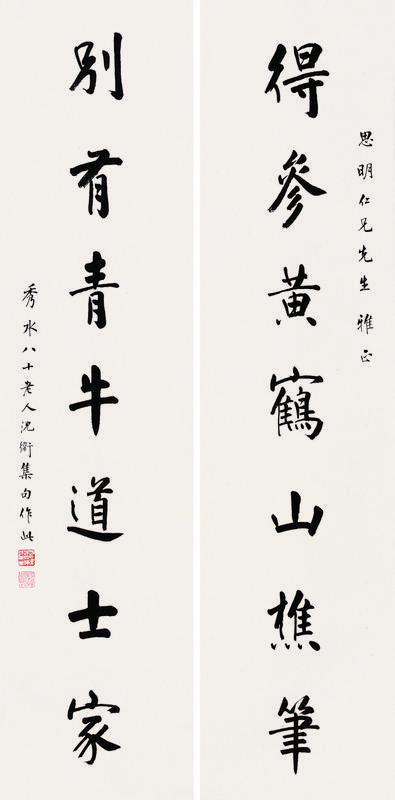 思明仁兄先生 雅正
得參黄鶴山樵筆
別有青牛道士家
秀水八十老人沈衛集句作此